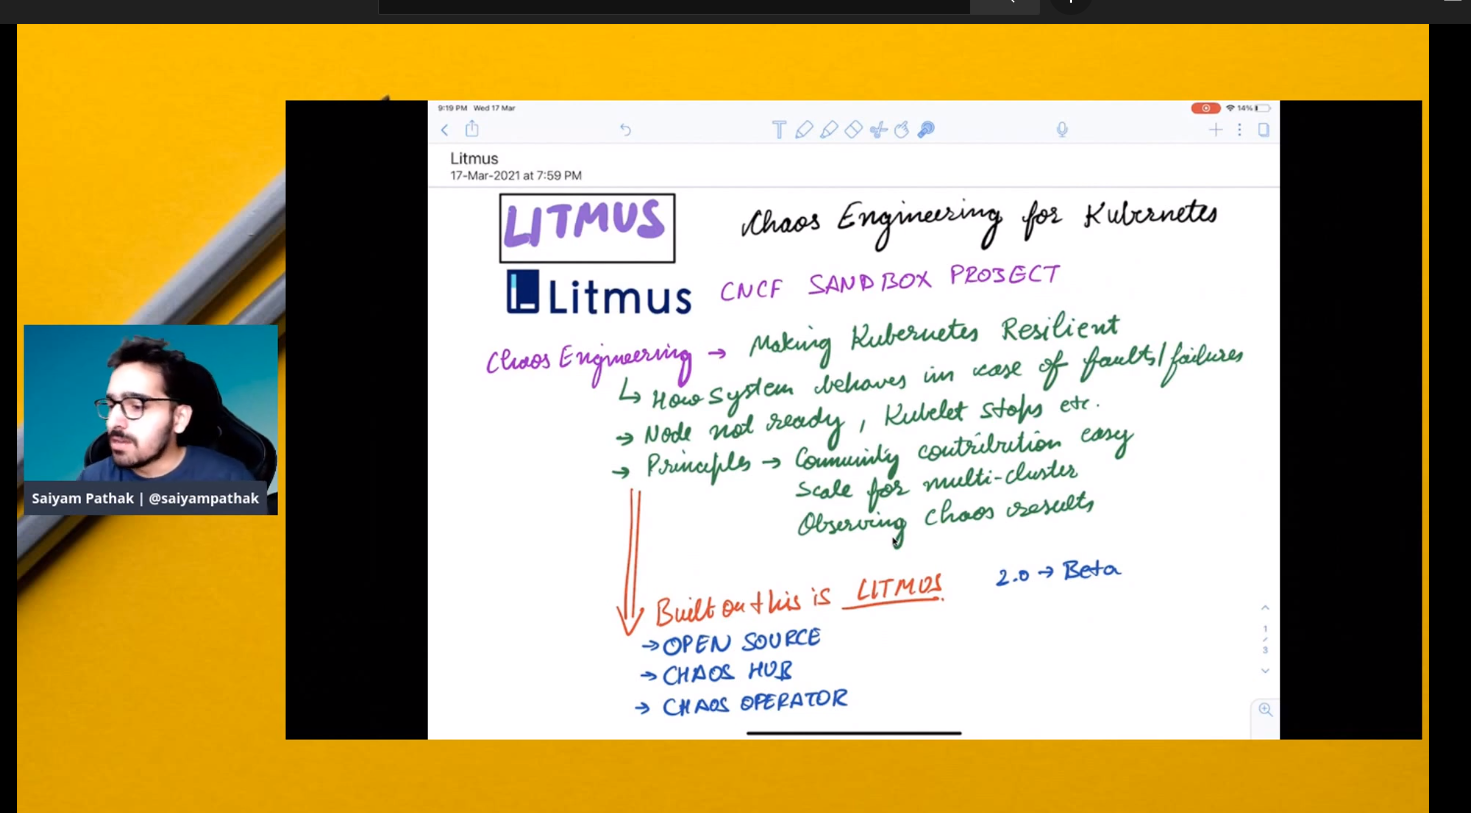 9:19 PM Wed 17 Mar
14%
Litmus
17-Mar-2021 at 7:59 PM
LITMUS
Chaos Engineering for Kubernetes
Litmus
CNCF SANDBOX PROJECT
Chaos Engineering → Making Kubernetes Resilient
↳ How System behaves in case of faults/failures
→ Node not ready, Kubelet stops etc.
→ Principles → Community contribution easy
Scale for multi-cluster
Observing chaos results
Saiyam Pathak | @saiyampathak
2.0 → Beta
Built on this is LITMUS
→ OPEN SOURCE
→ CHAOS HUB
→ CHAOS OPERATOR
1
/
3